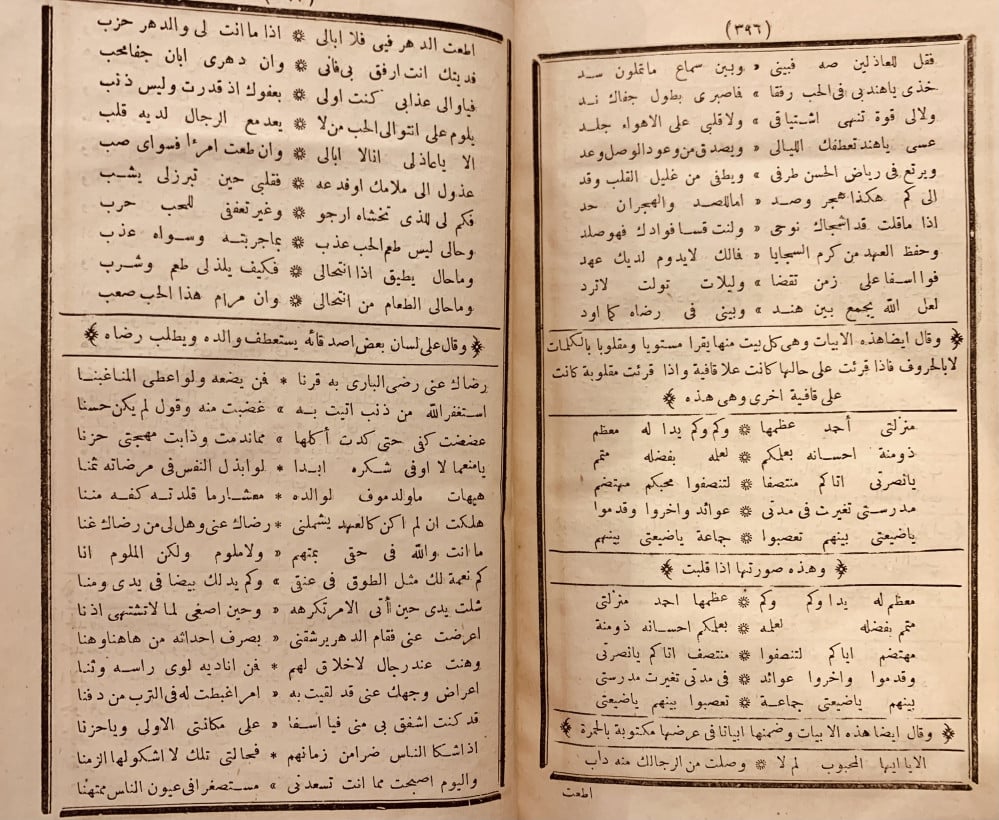 (٣٩٦)
فقل للعاذلين صه فبيني » وبين سماع ماتملون سد
خذى ياهندبى فى الحب رفقا » فاصبرى بطول جفاك ند
ولالى قوة تنهى اشتياقى » ولاقلبى على الاهواء جلد
عسى ياهند تعطفك الليالى » ويصدق من وعود الوصل وعد
ويرتع فى رياض الحسن طرفى » ويطفى من غليل القلب وقد
الى كم هكذا هجر وصد » اماللصد والهجران حد
اذا ماقلت قد اشجاك نوحى » ولنت قسا فوادك فهو صلد
وحفظ العهد من كرم السجايا » فالك لايدوم لديك عهد
فوا اسفا على زمن تقضا » وليلات تولت لاترد
لعل الله يجمع بين هند » وبينى فى رضاه كما اود
وقال ايضاهذه الابيات وهى كل بيت منها يقرا مستويا ومقلوبا بالكلمات
لابالحروف فاذا قرئت على حالها كانت علا قافية واذا قرئت مقلوبة كانت
على قافية اخرى وهى هذه
منزلتى أحمد عظمها ۞ وكم وكم يدا له معظم
ذومنة احسانه بعلكم ۞ لعله بفضله متم
يانصرتى اتاكم منتصفا ۞ لتنصفوا محبكم مهتضم
مدرستى تغيرت فى مدتى ۞ عوائد واخروا وقدموا
ياضيعتى بينهم تعصبوا ۞ جماعة ياضيعتى بينهم
وهذه صورتها اذا قلبت
معظم له يدا وكم وكم ۞ عظمها احمد منزلتى
متم بفضله لعله ۞ بعلكم احسانه ذومنة
مهتضم اياكم لتنصفوا ۞ منتصف اتاكم يانصرتى
وقدموا واخروا عوائد ۞ فى مدتى تغيرت مدرستى
بينهم ياضيعتى جماعة ۞ تعصبوا بينهم ياضيعتى
وقال ايضا هذه الابيات وضمنها ابياتا فى عرضها مكتوبة بالحمرة
الايا ايها المحبوب لم لا ۞ وصلت من ازجالك منه داب
اطعت
اطعت الدهر فيى فلا ابالى ۞ اذا ما انت لى والدهر حزب
فديتك انت ارفق بى فانى ۞ وان دهرى ابان جفا محب
فياوالى عذابى كنت اولى ۞ بعفوك اذ قدرت وليس ذنب
يلوم على انتوالى الحب من لا ۞ يعد مع الرجال لديه قلب
الا ياعاذلى انالا ابالى ۞ وان طعت امرءا فسواى صب
عذول الى ملامك اوفدعه ۞ فقلبى حين تبرزلى يشب
فكم لى للذى تخشاه ارجو ۞ وغير تعففى للمحب حرب
وحالى ليس طعم الحب عذب ۞ بماجربته وسواه عذب
وماحال يطيق اذا انتحالى ۞ فكيف يلذلى طعم وشرب
وماحالى الطعام من انتحالى ۞ وان مرام هذا الحب صعب
وقال على لسان بعض اصدقائه يستعطف والده ويطلب رضاه
رضاك عنى رضى البارى به قرنا * فن يضعه ولو اعطى المنا غبنا
استغفر الله من ذنب اتيت به » غضبت منه وقول لم يكن حسنا
عضضت كفى حتى كدت أكلها » مماندمت وذابت مهجتى حزنا
يامنعما لا اوفى شكره ابدا * لو ابذل النفس فى مرضاته ثمنا
هيهات ماولد موف لوالده * معشار ما قلدته كفه مننا
هلكت ان لم اكن كالعهد يشملنى * رضاك عنى وهل لى من رضاك غنا
ما انت والله فى حقى بمتهم » ولا ملوم ولكن الملوم انا
كم نعمة لك مثل الطوق فى عنقى » وكم يد لك بيضا فى يدى ومنا
شلت يدى حين أتى الامر تكرهه » وحين اصغى لما لاتشتهى اذنا
اعرضت عنى فقام الدهر يرشقنى » بصرف احداثه من هاهنا وهنا
وهنت عند رجال لاخلاق لهم * فن اناديه لوى راسه وثنا
اعراض وجهك عنى قد لقيت به » امر اغبطت له فى الترب من دفنا
قد كنت اشفق بى منى فيا اسفا » على مكانتى الاولى وياحزنا
اذ اشكا الناس ضرامن زمانهم * فحالتى تلك لا اشكولها الزمنا
واليوم اصبحت مما انت تسعدنى » مستصغرا فى عيون الناس ممتهنا